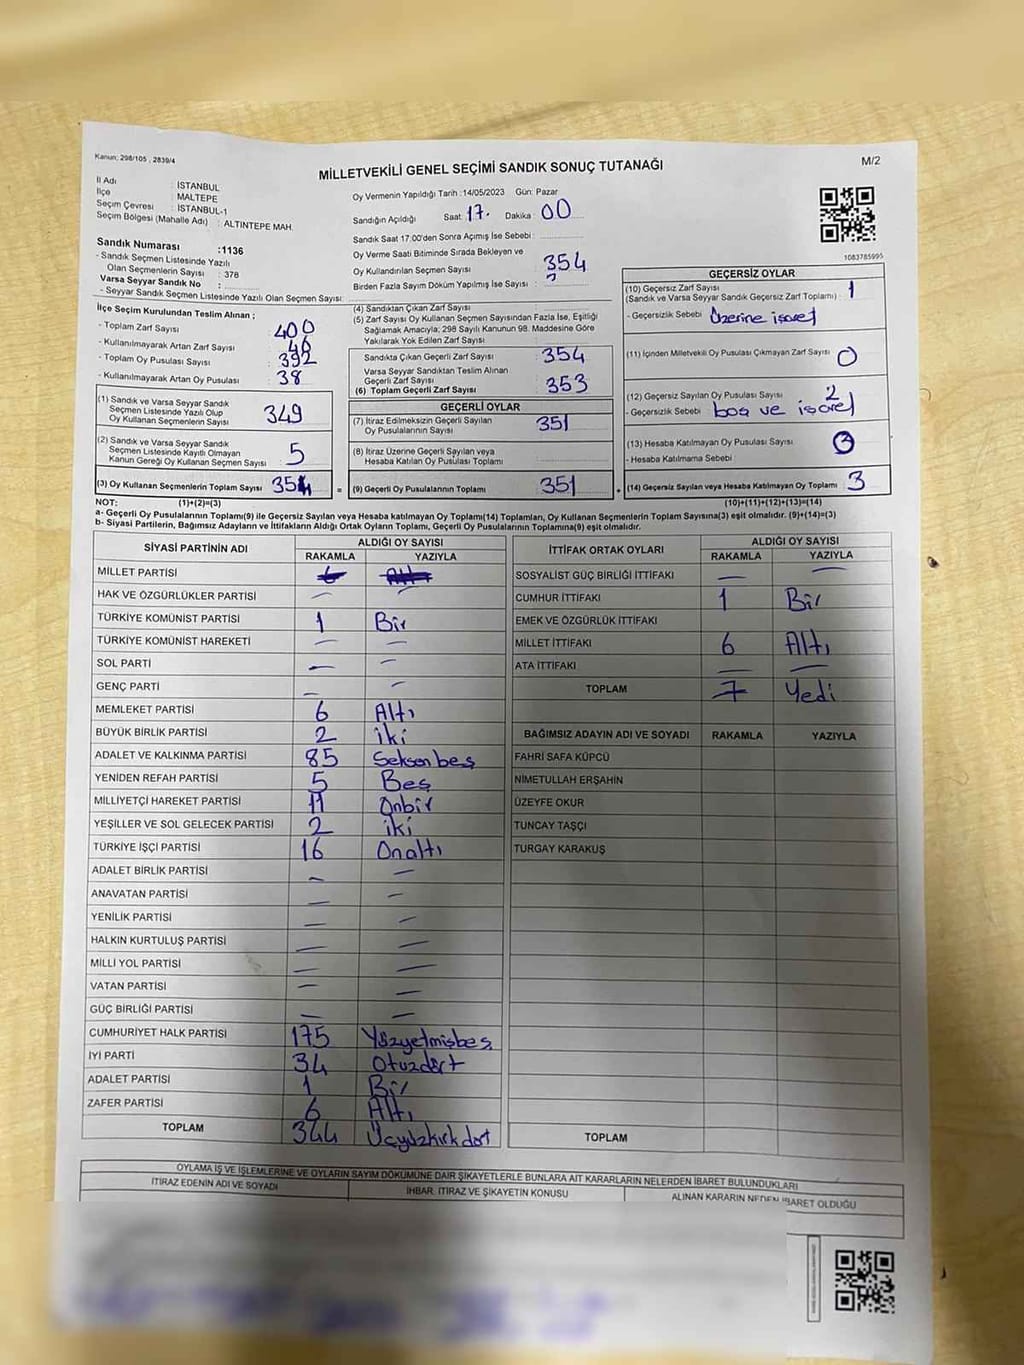 Kanun; 298/105 , 2839/4
MİLLETVEKİLİ GENEL SEÇİMİ SANDIK SONUÇ TUTANAĞI
M/2
İl Adı : İSTANBUL
İlçe : MALTEPE
Seçim Çevresi : İSTANBUL-1
Seçim Bölgesi (Mahalle Adı) : ALTINTEPE MAH.
Sandık Numarası :1136
- Sandık Seçmen Listesinde Yazılı
Olan Seçmenlerin Sayısı : 378
Varsa Seyyar Sandık No :
- Seyyar Sandık Seçmen Listesinde Yazılı Olan Seçmen Sayısı:
Oy Vermenin Yapıldığı Tarih :14/05/2023 Gün: Pazar
Sandığın Açıldığı Saat 17. Dakika 00
Sandık Saat 17:00'den Sonra Açımış İse Sebebi:
Oy Verme Saati Bitiminde Sırada Bekleyen ve
Oy Kullandırılan Seçmen Sayısı 354
Birden Fazla Sayım Döküm Yapılmış İse Sayısı :
1083785995
İlçe Seçim Kurulundan Teslim Alınan ;
- Toplam Zarf Sayısı 400
- Kullanılmayarak Artan Zarf Sayısı 46
- Toplam Oy Pusulası Sayısı 392
- Kullanılmayarak Artan Oy Pusulası 38
(1) Sandık ve Varsa Seyyar Sandık
Seçmen Listesinde Yazılı Olup
Oy Kullanan Seçmenlerin Sayısı 349
(2) Sandık ve Varsa Seyyar Sandık
Seçmen Listesinde Kayıtlı Olmayan
Kanun Gereği Oy Kullanan Seçmen Sayısı 5
(3) Oy Kullanan Seçmenlerin Toplam Sayısı 354 =
(4) Sandıktan Çıkan Zarf Sayısı
(5) Zarf Sayısı Oy Kullanan Seçmen Sayısından Fazla İse, Eşitliği
Sağlamak Amacıyla; 298 Sayılı Kanunun 98. Maddesine Göre
Yakılarak Yok Edilen Zarf Sayısı:
Sandıkta Çıkan Geçerli Zarf Sayısı 354
Varsa Seyyar Sandıktan Teslim Alınan
Geçerli Zarf Sayısı
(6) Toplam Geçerli Zarf Sayısı 353
GEÇERLİ OYLAR
(7) İtiraz Edilmeksizin Geçerli Sayılan
Oy Pusulalarının Sayısı 351
(8) İtiraz Üzerine Geçerli Sayılan veya
Hesaba Katılan Oy Pusulası Toplamı
(9) Geçerli Oy Pusulalarının Toplamı 351 +
GEÇERSİZ OYLAR
(10) Geçersiz Zarf Sayısı 1
(Sandık ve Varsa Seyyar Sandık Geçersiz Zarf Toplamı) :
- Geçersizlik Sebebi Üzerine işaret
(11) İçinden Milletvekili Oy Pusulası Çıkmayan Zarf Sayısı 0
(12) Geçersiz Sayılan Oy Pusulası Sayısı 2
- Geçersizlik Sebebi : boş ve işaret
(13) Hesaba Katılmayan Oy Pusulası Sayısı
- Hesaba Katılmama Sebebi
(14) Geçersiz Sayılan veya Hesaba Katılmayan Oy Toplamı 3
NOT: (1)+(2)=(3) (10)+(11)+(12)+(13)=(14)
a- Geçerli Oy Pusulalarının Toplamı(9) ile Geçersiz Sayılan veya Hesaba katılmayan Oy Toplamı(14) Toplamları, Oy Kullanan Seçmenlerin Toplam Sayısına(3) eşit olmalıdır. (9)+(14)=(3)
b- Siyasi Partilerin, Bağımsız Adayların ve İttifakların Aldığı Ortak Oyların Toplamı, Geçerli Oy Pusulalarının Toplamına(9) eşit olmalıdır.
SİYASİ PARTİNİN ADI ALDIĞI OY SAYISI
RAKAMLA YAZIYLA
MİLLET PARTİSİ
HAK VE ÖZGÜRLÜKLER PARTİSİ — —
TÜRKİYE KOMÜNİST PARTİSİ 1 Bir
TÜRKİYE KOMÜNİST HAREKETİ — —
SOL PARTİ — —
GENÇ PARTİ — —
MEMLEKET PARTİSİ 6 Altı
BÜYÜK BİRLİK PARTİSİ 2 iki
ADALET VE KALKINMA PARTİSİ 85 Seksen beş
YENİDEN REFAH PARTİSİ 5 Beş
MİLLİYETÇİ HAREKET PARTİSİ 11 Onbir
YEŞİLLER VE SOL GELECEK PARTİSİ 2 iki
TÜRKİYE İŞÇİ PARTİSİ 16 Onaltı
ADALET BİRLİK PARTİSİ — —
ANAVATAN PARTİSİ — —
YENİLİK PARTİSİ — —
HALKIN KURTULUŞ PARTİSİ — —
MİLLİ YOL PARTİSİ — —
VATAN PARTİSİ — —
GÜÇ BİRLİĞİ PARTİSİ — —
CUMHURİYET HALK PARTİSİ 175 Yüzyetmişbeş
İYİ PARTİ 34 Otuzdört
ADALET PARTİSİ 1 Bir
ZAFER PARTİSİ 6 Altı
TOPLAM 344 Üçyüzkırkdört
İTTİFAK ORTAK OYLARI ALDIĞI OY SAYISI
RAKAMLA YAZIYLA
SOSYALİST GÜÇ BİRLİĞİ İTTİFAKI — —
CUMHUR İTTİFAKI 1 Bir
EMEK VE ÖZGÜRLÜK İTTİFAKI
MİLLET İTTİFAKI 6 Altı
ATA İTTİFAKI — —
TOPLAM 7 Yedi
BAĞIMSIZ ADAYIN ADI VE SOYADI RAKAMLA YAZIYLA
FAHRİ SAFA KÜPCÜ
NİMETULLAH ERŞAHİN
ÜZEYFE OKUR
TUNCAY TAŞÇI
TURGAY KARAKUŞ
TOPLAM
OYLAMA İŞ VE İŞLEMLERİNE VE OYLARIN SAYIM DÖKÜMÜNE DAİR ŞİKAYETLERLE BUNLARA AİT KARARLARIN NELERDEN İBARET BULUNDUKLARI
İTİRAZ EDENİN ADI VE SOYADI İHBAR, İTİRAZ VE ŞİKAYETİN KONUSU ALINAN KARARIN NEDEN İBARET OLDUĞU